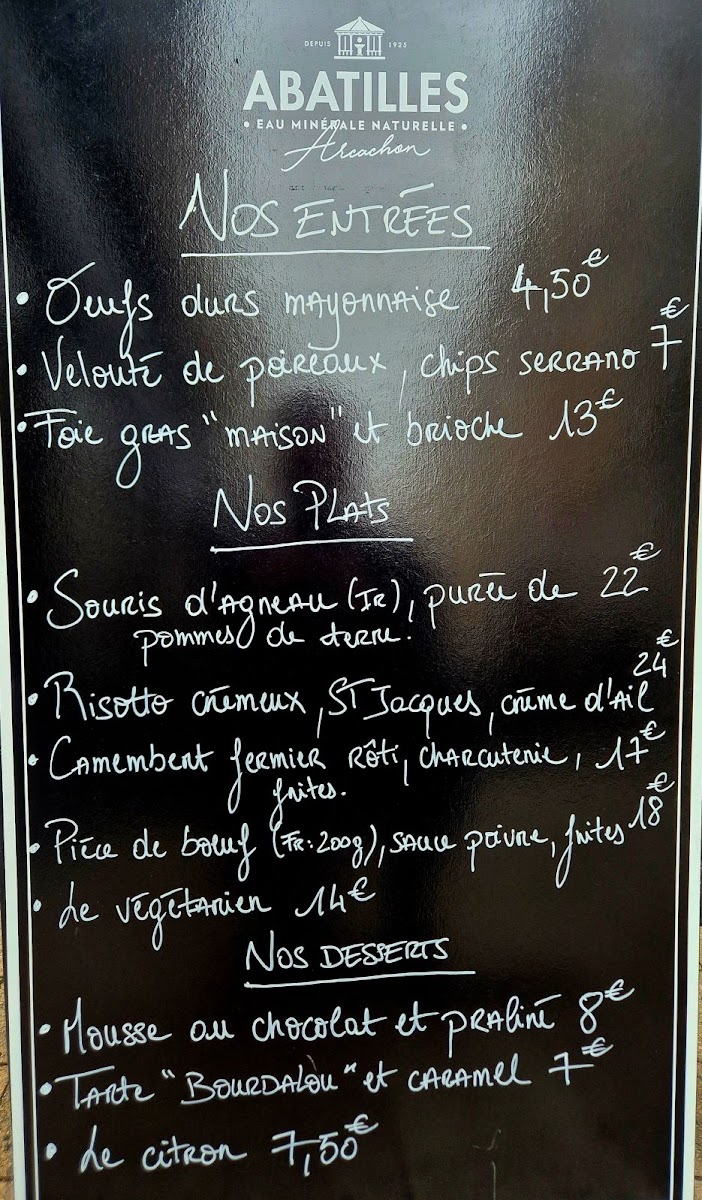 DEPUIS 1925
ABATILLES
• EAU MINÉRALE NATURELLE •
Arcachon
NOS ENTRÉES
• Œufs durs mayonnaise 4,50€
• Velouté de poireaux, chips serrano 7€
• Foie gras "maison" et brioche 13€
Nos Plats
• Souris d'agneau (Ir), purée de 22€
pommes de terre.
• Risotto crémeux, St Jacques, crème d'ail 24€
• Camembert fermier rôti, charcuterie, 17€
frites.
• Pièce de bœuf (Fr: 200g), sauce poivre, frites 18€
• Le végétarien 14€
Nos desserts
• Mousse au chocolat et praliné 8€
• Tarte "Bourdalou" et caramel 7€
• Le citron 7,50€